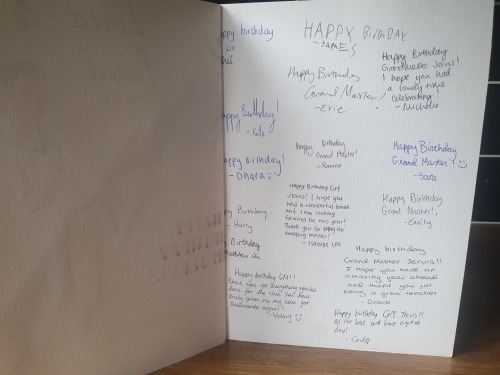 ppy birthday
sir
HAPPY BirthDAY
~JAMES
Happy Birthday
Grandmaster Jervis!
I hope you had
a lovely time
celebrating!
- Michelle
Happy Birthday
Grand Master!
-Evie
ppy Birthday!
- Kate
Happy Birthday
Grand Master!
Happy Birthday
Grand Master!
- Sara
ppy Birthday!
- Dhara
Happy Birthday GM
Jervis! I hope you
had a wonderful break
and I am looking
forward to this year!
Thank you for being an
amazing master!
- Isabelle Lee
Happy Birthday
Grand Master!
- Emily
Birthday!
- Harry
Birthday
Happy birthday
Grand Master Jervis!!
I hope you have an
amazing year ahead
and thank you for
being a great teacher
- Grace
Happy birthday GM!!
Thank you for everything you've
done for the club. You have
truly given me my love for
again!
- Valary
Happy birthday GM Jervis!!
All the best and have a great
day!